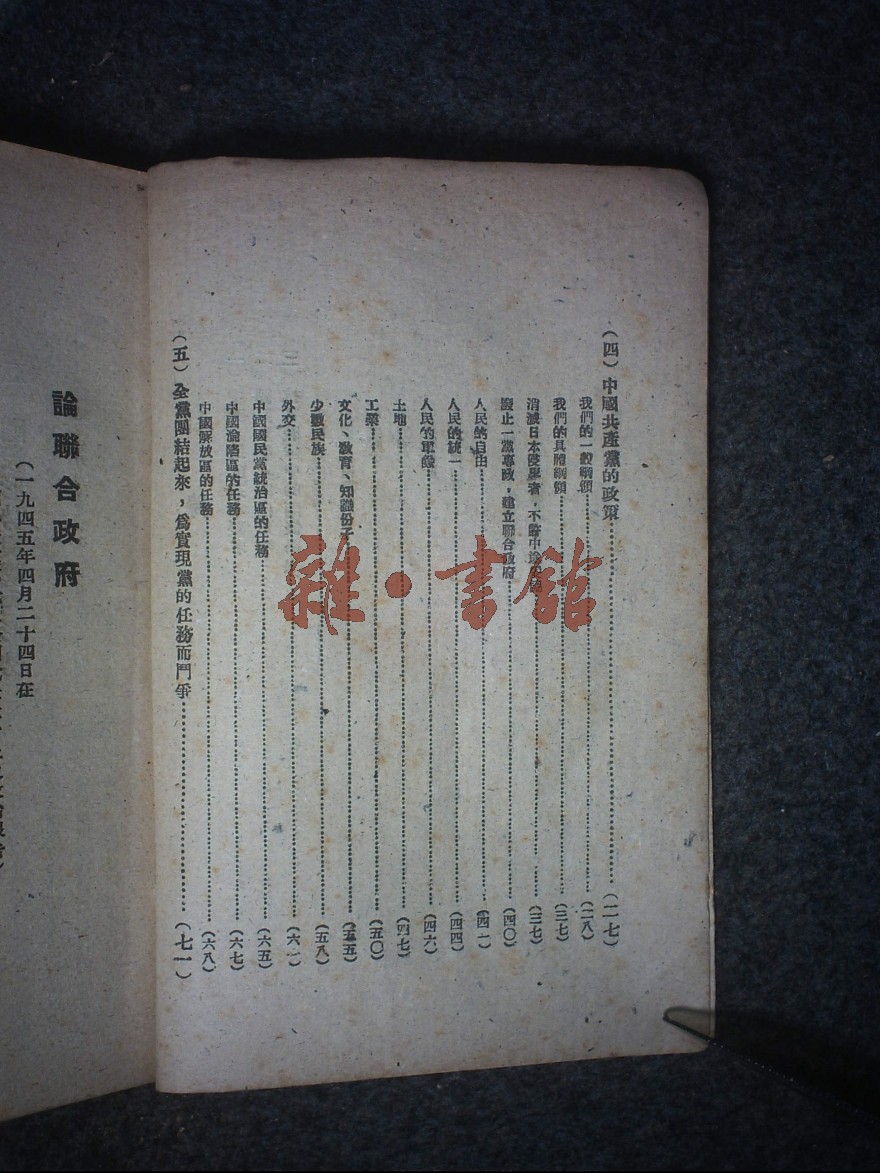 (四)中國共產黨的政策……(二七)
我們的一般綱領……(二八)
我們的具體綱領……(三七)
消滅日本侵畧者,不許中途……(三七)
廢止一黨專政,建立聯合政府……(四〇)
人民的自由……(四一)
人民的統一……(四四)
人民的軍隊……(四六)
土地……(四七)
工業……(五〇)
文化、敎育、知識份子……(五五)
少數民族……(五八)
外交……(六一)
中國國民黨統治區的任務……(六五)
中國淪陷區的任務……(六七)
中國解放區的任務……(六八)
(五)全黨團結起來,爲實現黨的任務而鬥爭……(七一)
論聯合政府
(一九四五年四月二十四日在
雜·書館